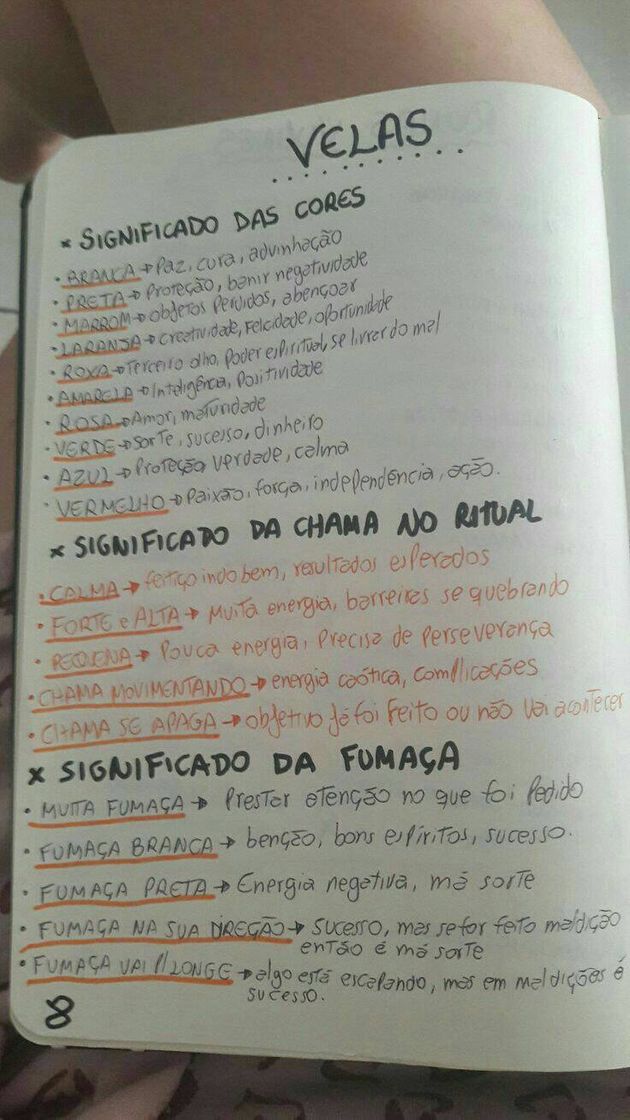 VELAS
× SIGNIFICADO DAS CORES
• BRANCA → Paz, cura, advinhação
• PRETA → Proteção, banir negatividade
• MARROM → objetos perdidos, abençoar
• LARANJA → creatividade, Felcidade, oportunidade
• ROXA → Terceiro olho, Poder espiritual, se livrar do mal
• AMARELA → Inteligência, Positividade
• ROSA → Amor, maturidade
• VERDE → sorte, sucesso, dinheiro
• AZUL → Proteção, verdade, calma
• VERMELHO → Paixão, força, independência, ação.
× SIGNIFICADO DA CHAMA NO RITUAL
• CALMA → feitiço indo bem, resultados esperados
• FORTE e ALTA → Muita energia, barreiras se quebrando
• PEQUENA → Pouca energia, Precisa de Perseverança
• CHAMA MOVIMENTANDO → energia caótica, complicações
• CHAMA SE APAGA → objetivo já foi feito ou não vai acontecer
× SIGNIFICADO DA FUMAÇA
• MUITA FUMAÇA → Prestar atenção no que foi Pedido
• FUMAÇA BRANCA → benção, bons espíritos, sucesso.
• FUMAÇA PRETA → Energia negativa, má sorte
• FUMAÇA NA SUA DIREÇÃO → Sucesso, mas se for feito maldição
então é má sorte
• FUMAÇA VAI P/ LONGE → algo está escapando, mas em maldições é
sucesso.
8